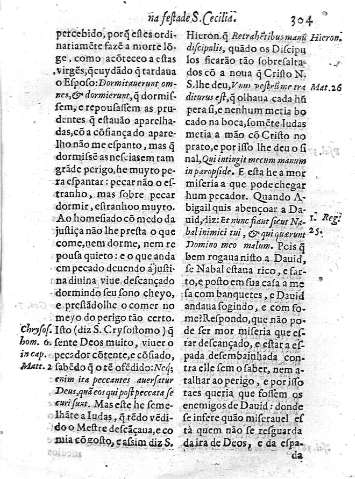 na festa de S. Cecilia.
304
percebido, porq̃ estes ordi-
nariamẽte fazẽ a morte lõ-
ge. como acõteceo a estas
virgẽs, q̃ cuydãdo q̃ tardaua
o Esposo: Dormitauerunt om-
nes, & dormierunt, q̃ dormis-
sem, e repousassem as pru-
dentes q̃ estauão aparelha-
das, cõ a cõfiança do apare-
lho não me espanto, mas q̃
dormissẽ as nescias em tam
grãde perigo, he muyto pe-
ra espantar: pecar não o es-
tranho, mas sobre pecar
dormir, estranho muyto.
Ao homesiado cõ medo da
justiça não lhe presta o que
come, nem dorme, nem re-
pousa quieto: e o que anda
em pecado deuendo á justi-
na diuina viue descançado
dormindo seu sono cheyo,
e prestãdolhe o comer no
meyo do perigo tão certo.
Chrysos. hom. 6. in cap. Matt. 2
Isto (diz S. Crysostomo) q̃
sente Deos muito, viuer o
pecador cõtente, e cõfiado,
sabẽdo q̃ o tẽ ofẽdido: Neq;
enim ita peccantes auersatur
Deus, quã eos qui post peccata se
curi sunt. Mas este he seme-
lhãte a Iudas, q̃ tẽdo vẽdi-
do o Mestre descãçaua, e co
mia cõ gosto, e assim diz S.
Hieron. q̃ Retrahẽtibus manũ
Hieron.
discipulis, quãdo os Discipu
los ficarão tão sobresalta-
dos cõ a noua q̃ Cristo N.
S. lhe deu, Vnus vestrũ me tra
Mat. 26
diturus est, q̃ olhaua cada hũ
pera si, e nenhum metia bo
cado na boca, somẽte Iudas
metia a mão cõ Cristo no
prato, e por isso lhe deu o si
nal, Qui intingit mecum manum
in paropside. E esta he a mor
miseria a que pode chegar
hum pecador. Quando A-
bigail quis abençoar a Da-
uid, diz: Et nunc fiant sicut Na-
1. Regũ
bal inimici tui, & qui quærunt
25.
Domino meo malum. Pois q̃
bem rogaua nisto a Dauid,
se Nabal estaua rico, e far-
to, e posto em sua casa a me
sa com banquetes, e Dauid
andaua fogindo, e com fo-
me? Respondo, que não po-
de ser mor miseria que es-
tar descançado, e estar a es-
pada desembainhada con-
tra elle sem o saber, nem a-
talhar ao perigo, e por isso
taes queria que fossem os
enemigos de Dauid: donde
se insere quão miserauel es
tá quem não se resguarda
da ira de Deos, e da espa-
da